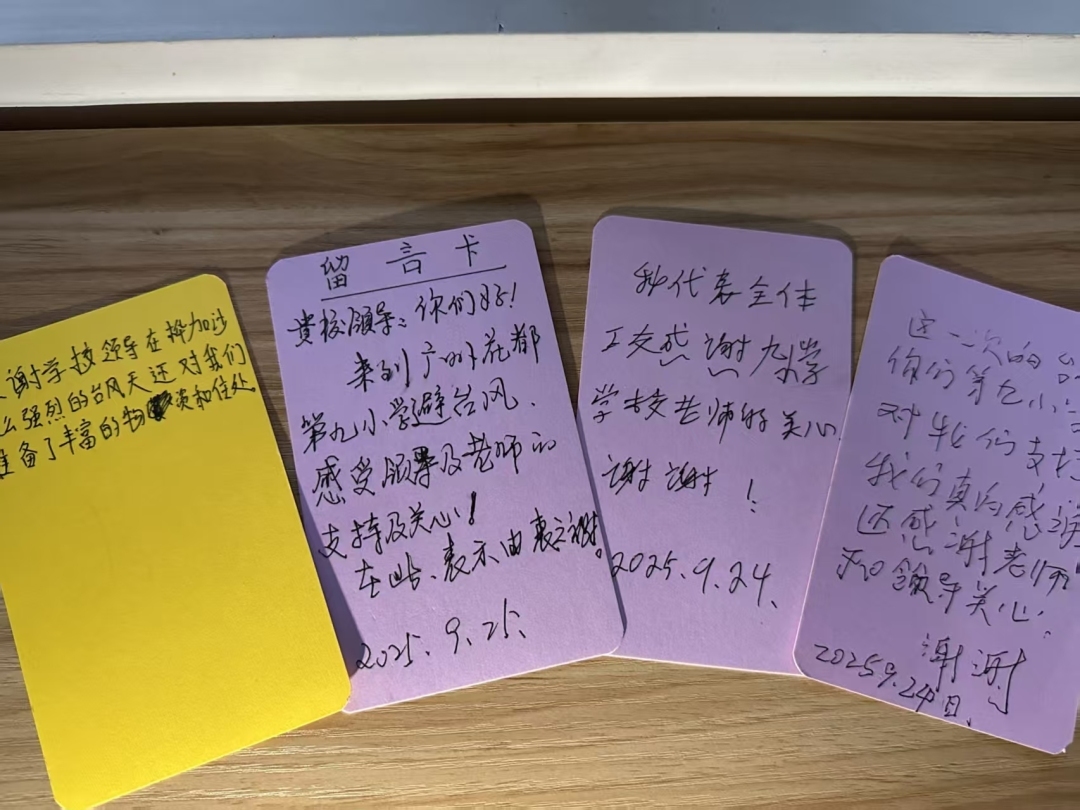 谢学校领导在桦加沙
么强烈的台风天还对我们
准备了丰富的物资和住处
留言卡
贵校领导:你们好!
来到广州花都
第九小学避台风、
感受领导及老师的
支持及关心!
在此、表示由衷之谢。
2025.9.25、
我代表全体
工友感谢九小学
学校老师的关心
谢谢!
2025.9.24、
这一次的台
你们第九小学
对我们支持
我们真的感谢
还感谢老师
和领导关心.
谢谢
2025 9.24日、